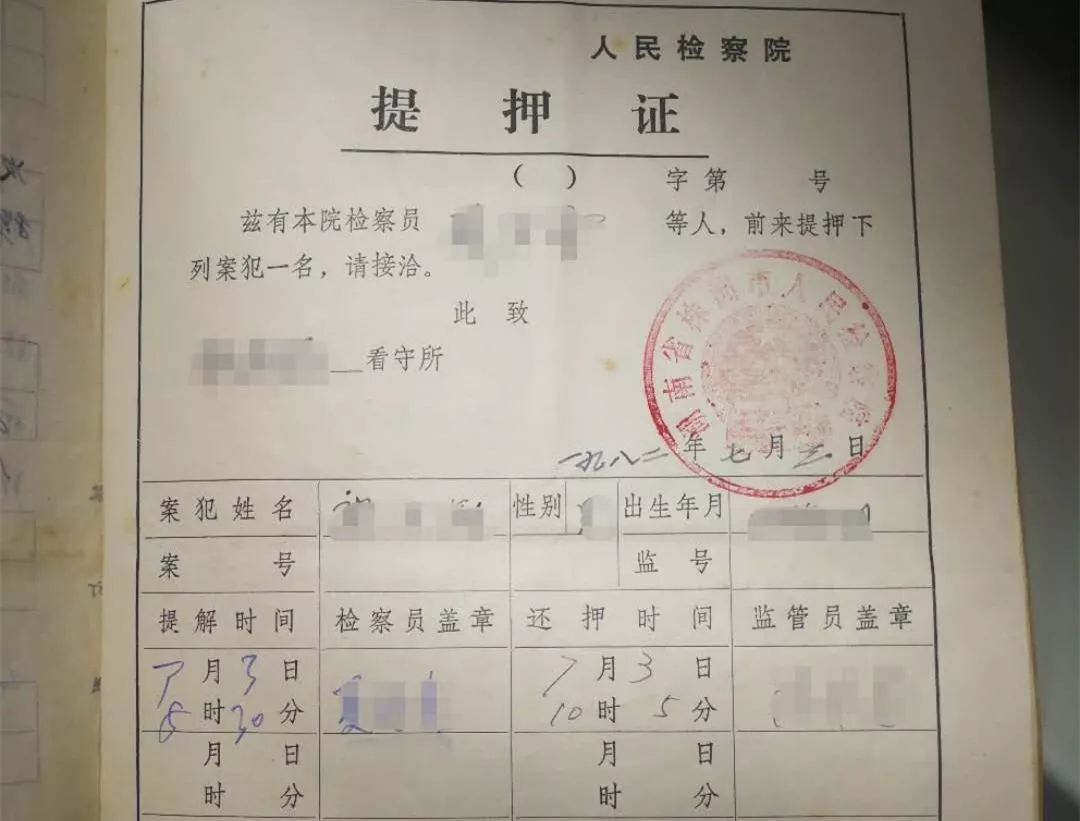 人民检察院
提押证
（ ） 字第 号
兹有本院检察员 等人，前来提押下
列案犯一名，请接洽。
此致
看守所
湖南省株洲市人民检察院
一九八二年七月三日
案犯姓名 性别 出生年月
案号 监号
提解时间 检察员盖章 还押时间 监管员盖章
7月3日 7月3日
8时30分 10时5分
月日 月日
时分 时分